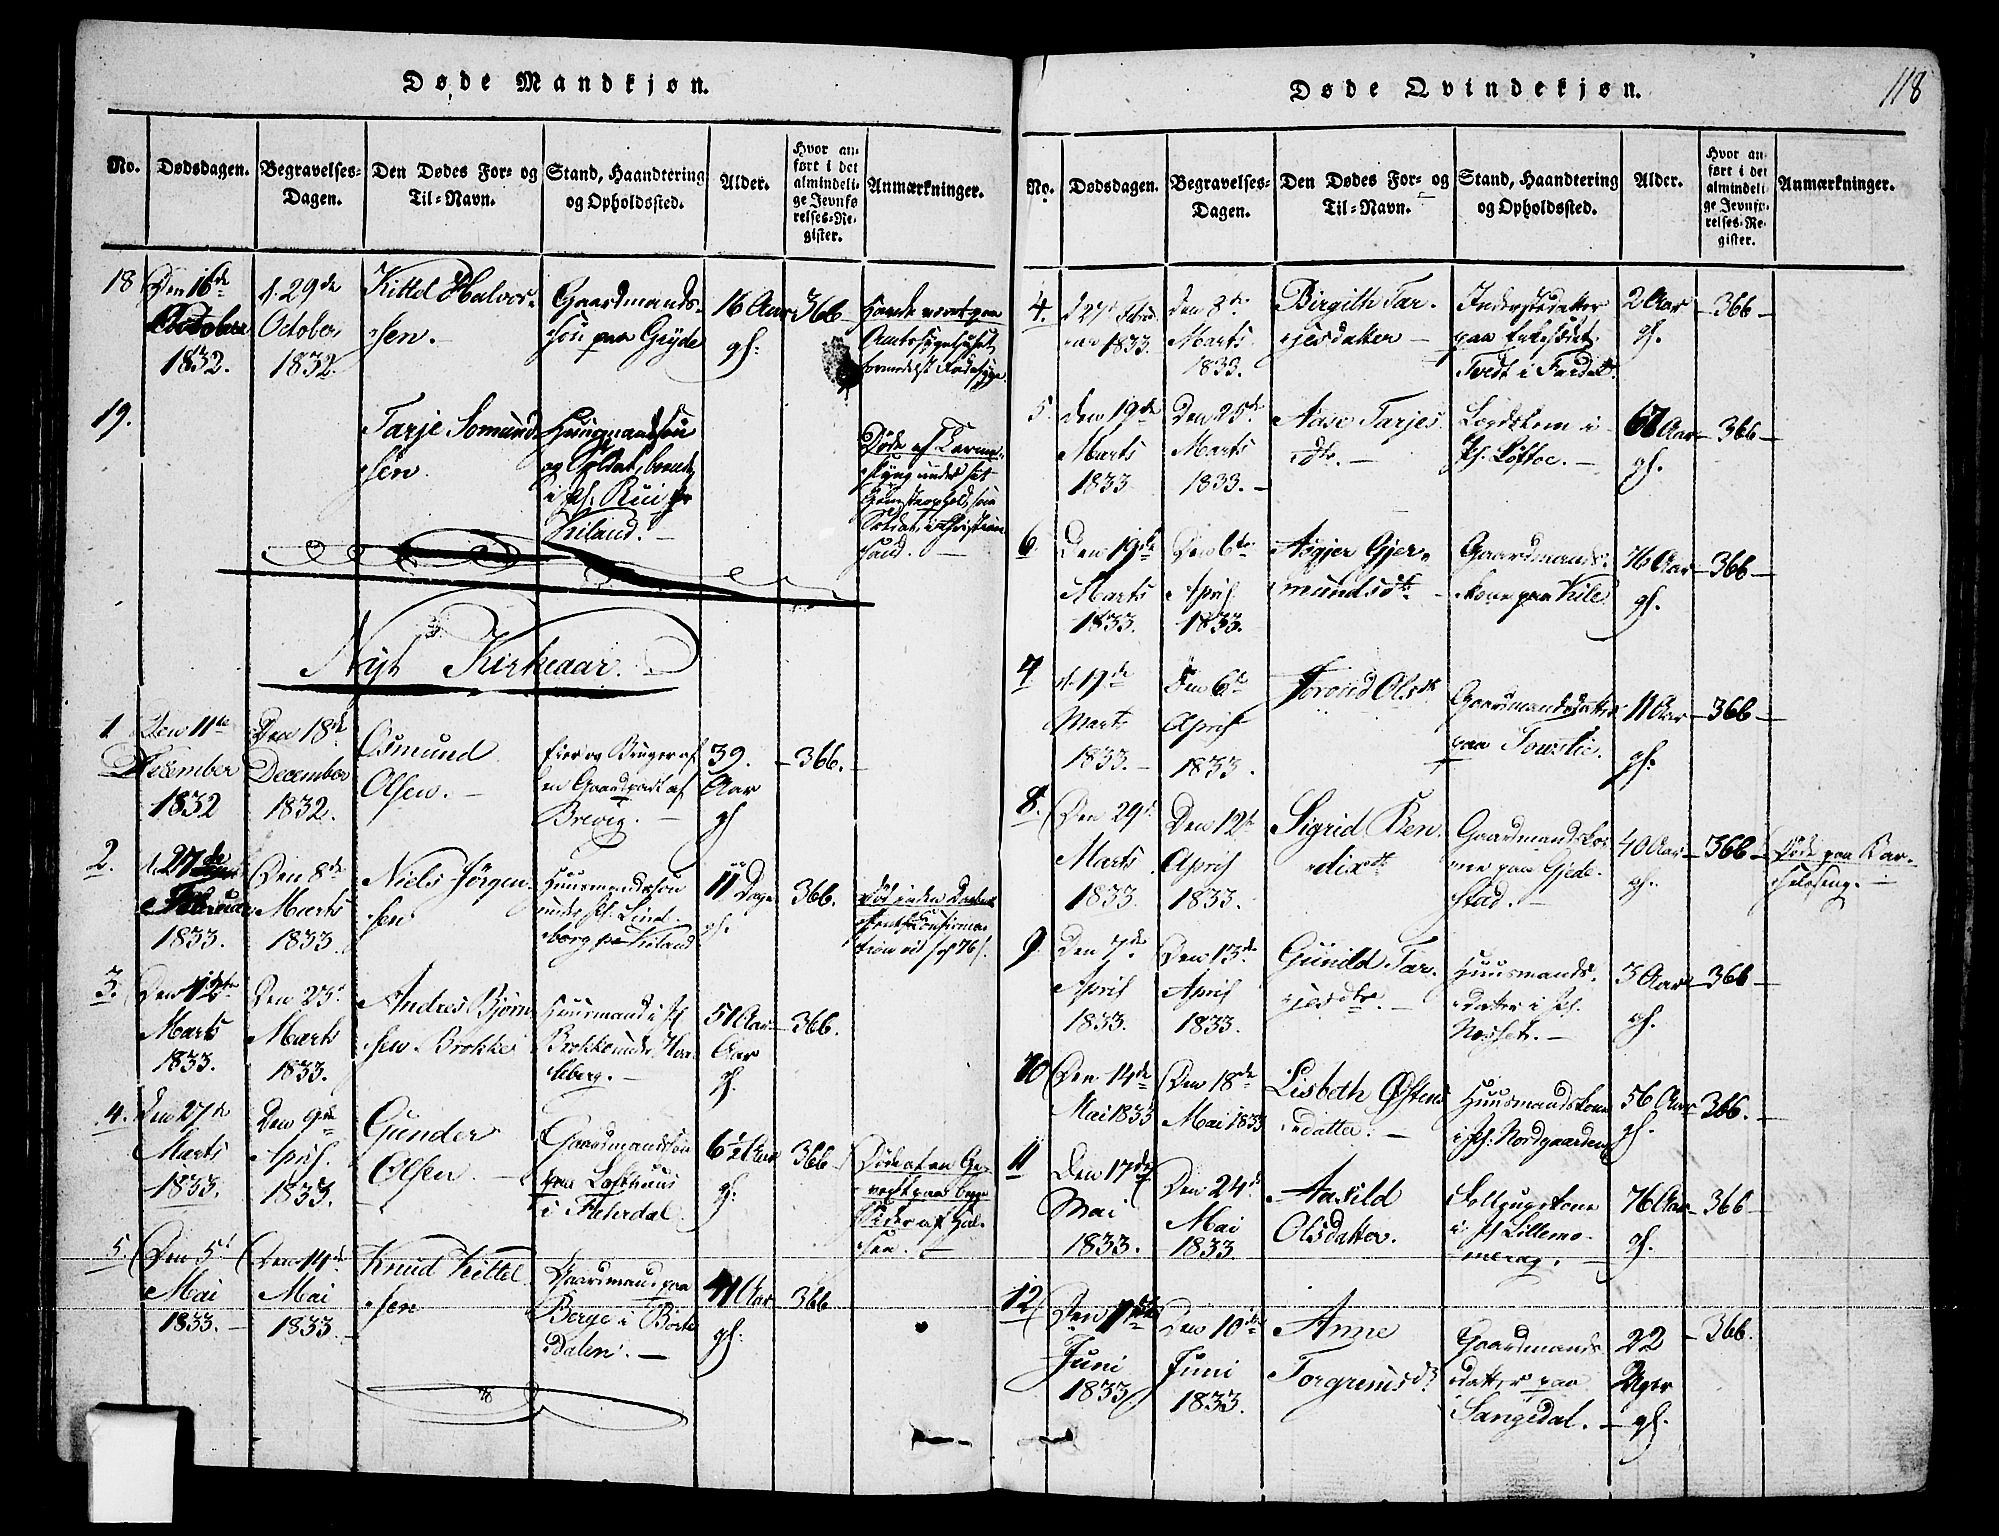 Døde Mandkjøn.
No.
Dødsdagen.
Begravelses-
Dagen.
Den Dødes For- og
Til-Navn.
Stand, Haandtering
og Opholdssted.
Alder.
Hvor an-
ført i det
almindeli-
ge Jevnfø
relses-Re-
gister.
Anmærkninger.
18
Den 16de
October
1832.
d. 29de
October
1832.
Kittel Halvor-
sen.
Gaardmands-
søn paa Grÿde
16 Aar
gl:
366
havde været paa
Amtssygehuset
formedelst Radesyge
19.
Tarje Somund-
sen.
Huusmandssøn
og Soldat,
i Pl. Rui
Kiland.
Døde af
under sit
som
Soldat i Christian
sand.
Nÿt Kirkeaar.
1
Den 11te
December
1832
Den 18de
December
1832.
Osmund
Olsen.
Eier og Bruger af
en Gaardpart af
Brevig.
39.
Aar
gl
366.
2.
d. 27de
Februar
1833.
Den 8de
Marts
1833.
Niels Jørgen-
sen
Huusmandssøn
under Pl. Lind-
borg paa Kiland
11 Dage
gl.
366.
3.
Den 12te
Marts
1833.
Den 23d
Marts
1833.
Andres Bjørn-
sen Brokke
Huusmand i Pl
Brokke under
berg.
51 Aar
Aar
gl.
366.
4.
Den 27de
Marts
1833.
Den 9de
April.
1833.
Gunder
Olsen
Gaardmandssøn
paa Lofthuus
i Fiærdal
6½ Aar
gl.
366
Døde af en
5.
Den 5t
Mai
1833.
Den 14de
Mai
1833.
Knud Kittel-
sen
Gaardmand paa
Berge i Børte
Dalen.
41 Aar
gl:
366
Døde Qvindekjøn.
118
No.
Dødsdagen.
Begravelses-
Dagen.
Den Dødes For- og
Til-Navn.
Stand, Haandtering
og Opholdssted.
Alder.
Hvor an-
ført i det
almindeli-
ge Jevnfø-
relses-Re-
gister.
Anmærkninger.
4.
d 27d Febru
ar 1833.
Den 8de
Marts
1833.
Birgith Tar-
jesdatter
Inderstedatter
paa
Tvedt i
2 Aar
gl.
366
5.
Den 19de
Marts
1833
Den 25de
Marts
1833.
Aase Tarjes
dtr.
Legdslem i
Pl. Loftoe.
67 Aar
gl.
366
6.
Den 19de
Marts
1833.
Den 6te
April
1833.
Asgjer Gjer-
mundsdtr.
Gaardmands-
kone paa Kile
76 Aar
gl.
366
7
d. 19de
Marts
1833.
Den 6te
April
1833.
Torond Olsdtr
Gaardmandsdatter
paa
11 Aar
gl:
366
8.
Den 29d
Marts
1833
Den 12te
April
1833.
Sigrid Ben-
dixdtr
Gaardmandsko-
ne paa Gjede-
stad.
40 Aar
gl.
366
Døde paa Bar-
selseng.
9.
Den 7de
April
1833.
Den 13de
April
1833.
Gunild Tar-
jesdtr.
Huusmands-
datter i Pl.
Næsset.
3 Aar
gl.
366
10
Den 14de
Mai 1833
Den 18de
Mai 1833
Lisbeth Østens
datter.
Huusmandskone
i Pl: Nordgaarden
56 Aar
gl.
366.
11
Den 17de
Mai
1833.
Den 24d
Mai
1833
Aasild
Olsdatter.
Folkeugskone
i Pl Lillemo-
76 Aar
gl.
366
12
Den 1ste
Juni
1833
Den 10de
Juni
1833.
Anne
Torgrimsd
Gaardmands
datter paa
Sangedal.
22
Uger
gl.
366.